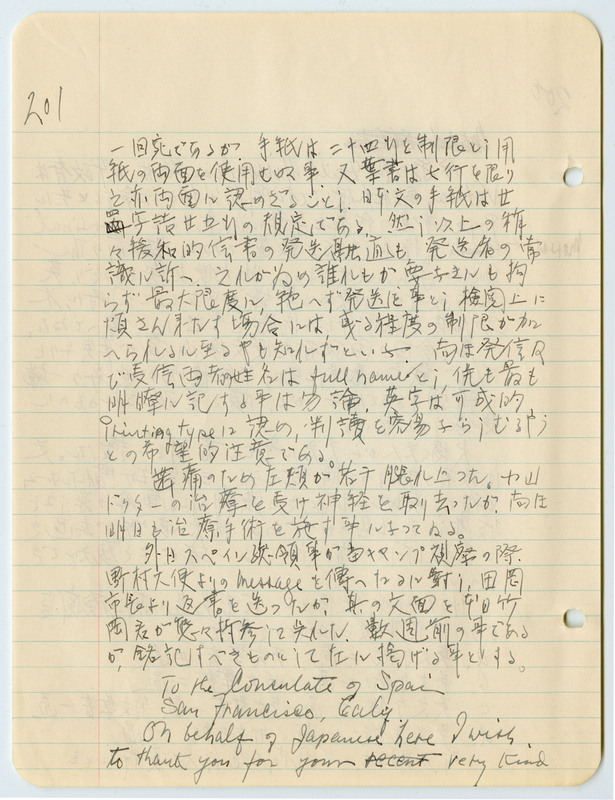 201
一回宛であるが 手紙は二十四行と制限し用
紙の両面を使用せぬ事 又葉書は七行を限り
之亦両面に認めざること、 邦文の手紙は廿
字詰廿五行の規定である。 然し以上の稍
々緩和的信書の発送 も 発送者の常
識に訴へ、 之れが為め誰れもが要 も拘
らず最大限度に、絶へず発送を事とし検閲上に
煩さん来たす場合には 或る程度の制限が加
へられるに至るやも知れずといふ。 尚ほ発信及
び受信両者の姓名は full name とし、 も最も
明瞭に記する事は勿論、 英字は可成的
printing type に認め、判読を容易ならしむるやう
との希望的注意である。
歯痛のため左頬が若干脹れ上つた。 山
ドクターの治療を受け神経を取去つたが 尚ほ
明日も治療手術を施す事になつてゐる。
外日スペイン総領事が当キヤンプ視察の際、
野村大使よりの message を傳へたるに對し、 田岡
市長より返書を送つたが、其の文面を本日竹
岡君が態々持参して呉れた。 数週前の事である
が、銘記すべきものとして左に掲げる事とする。
To the Consulate of Spain
San Francisco, Caly.
On behalf of Japanese here I wish
to thank you for your recent very kind